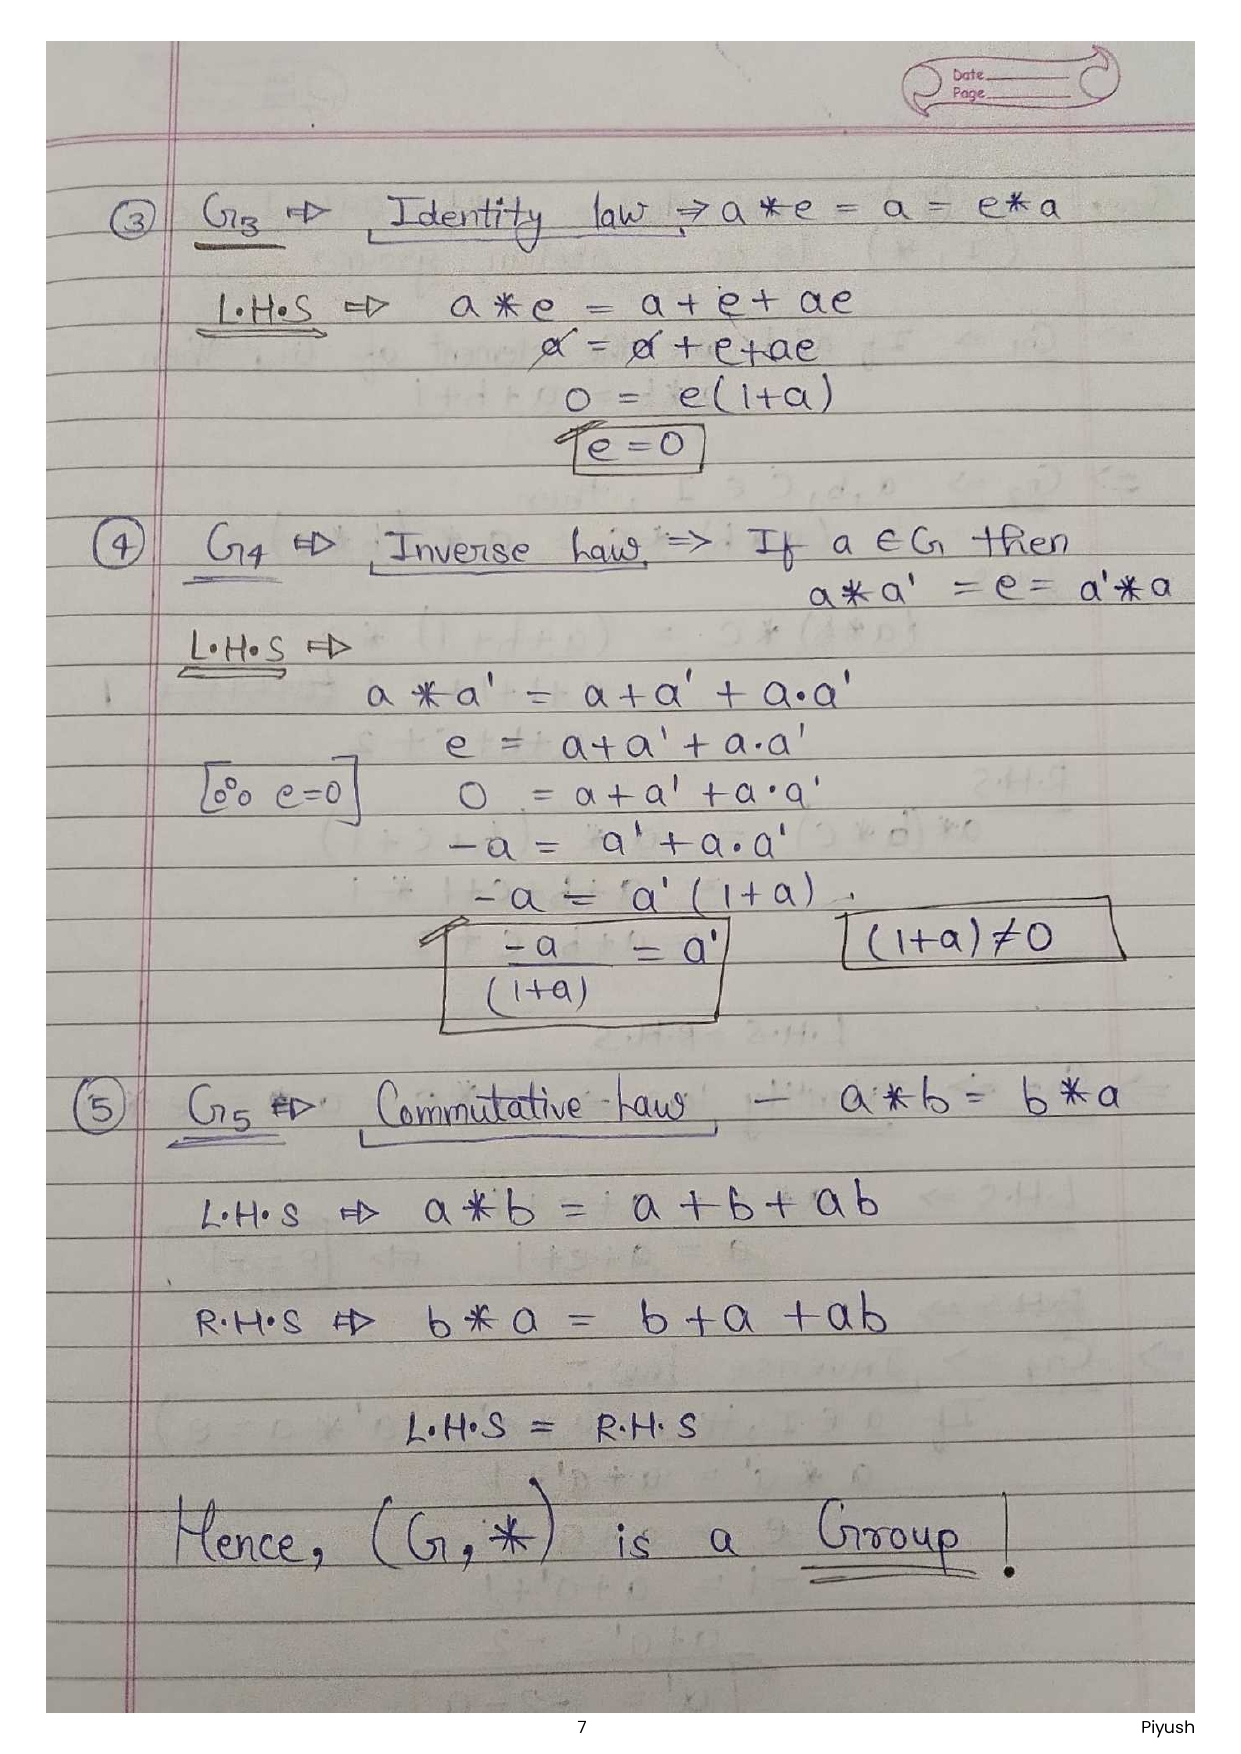 Date
Page
③ G3 ⇒ Identity law ⇒ a * e = a = e * a
L.H.S ⇒ a * e = a + e + ae
a = a + e + ae
0 = e(1+a)
e = 0
④ G4 ⇒ Inverse Law ⇒ If a ∈ G then
a * a' = e = a' * a
L.H.S ⇒
a * a' = a + a' + a.a'
e = a + a' + a.a'
[∵ e=0] 0 = a + a' + a.a'
-a = a' + a.a'
-a = a' (1+a)
-a/(1+a) = a' (1+a) ≠ 0
⑤ G5 ⇒ Commutative Law - a * b = b * a
L.H.S ⇒ a * b = a + b + ab
R.H.S ⇒ b * a = b + a + ab
L.H.S = R.H.S
Hence, (G, *) is a Group!
7 Piyush